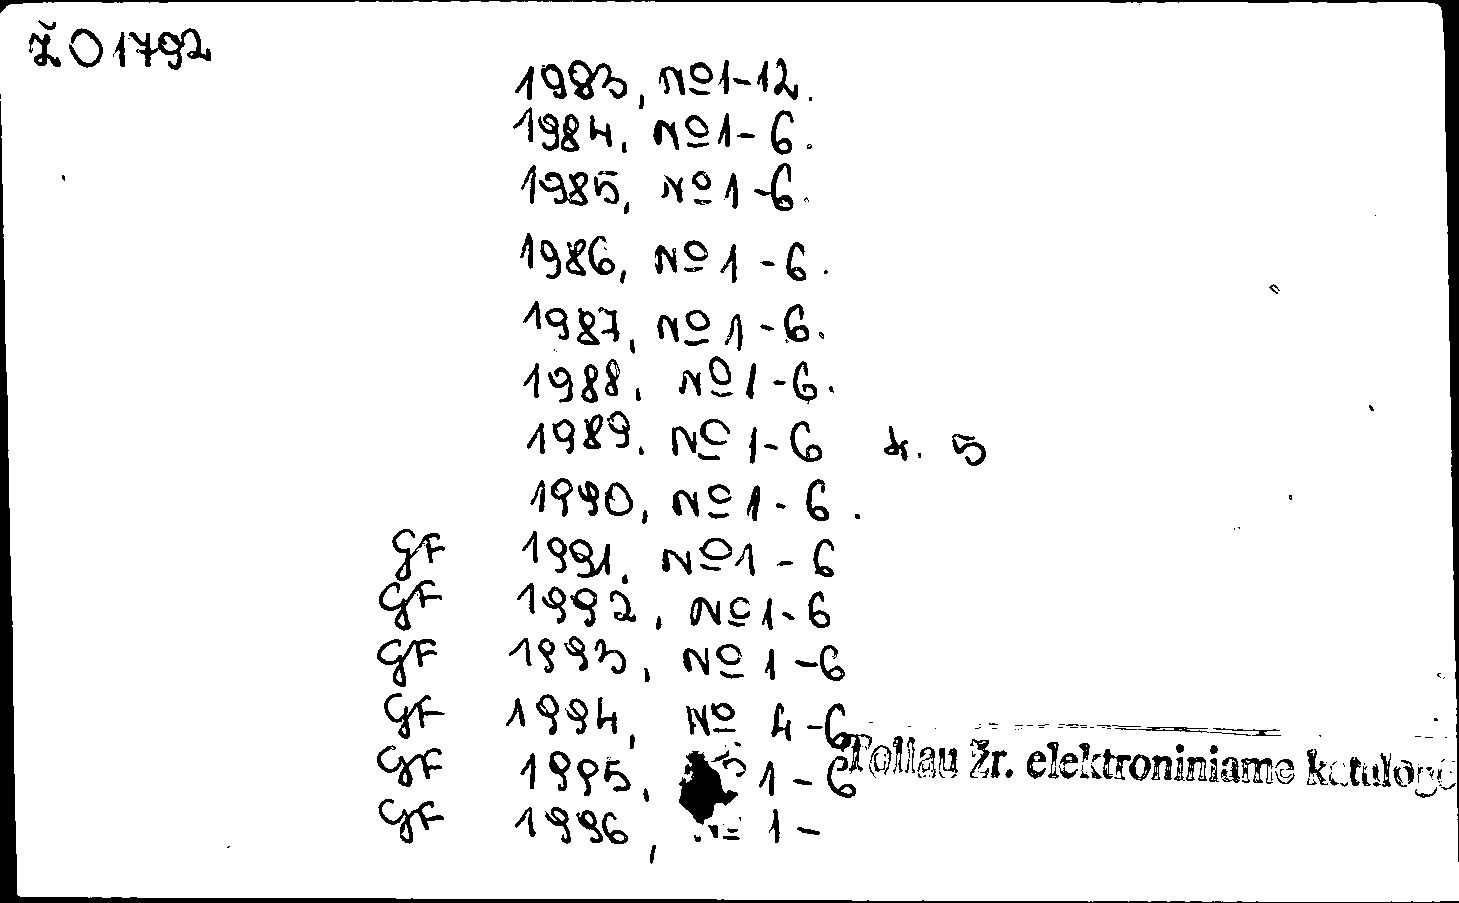 ŽO1792
1983, №1-12.
1984, №1-6.
1985, №1-6.
1986, №1-6.
1987, №1-6.
1988, №1-6.
1989. №1-6 d. 5
1990, №1-6.
GF 1991, №1-6
GF 1992, №1-6
GF 1993, №1-6
GF 1994, № 4-6
GF 1995, 1-6
GF 1996, № 1-
Toliau žr. elektroniniame kataloge